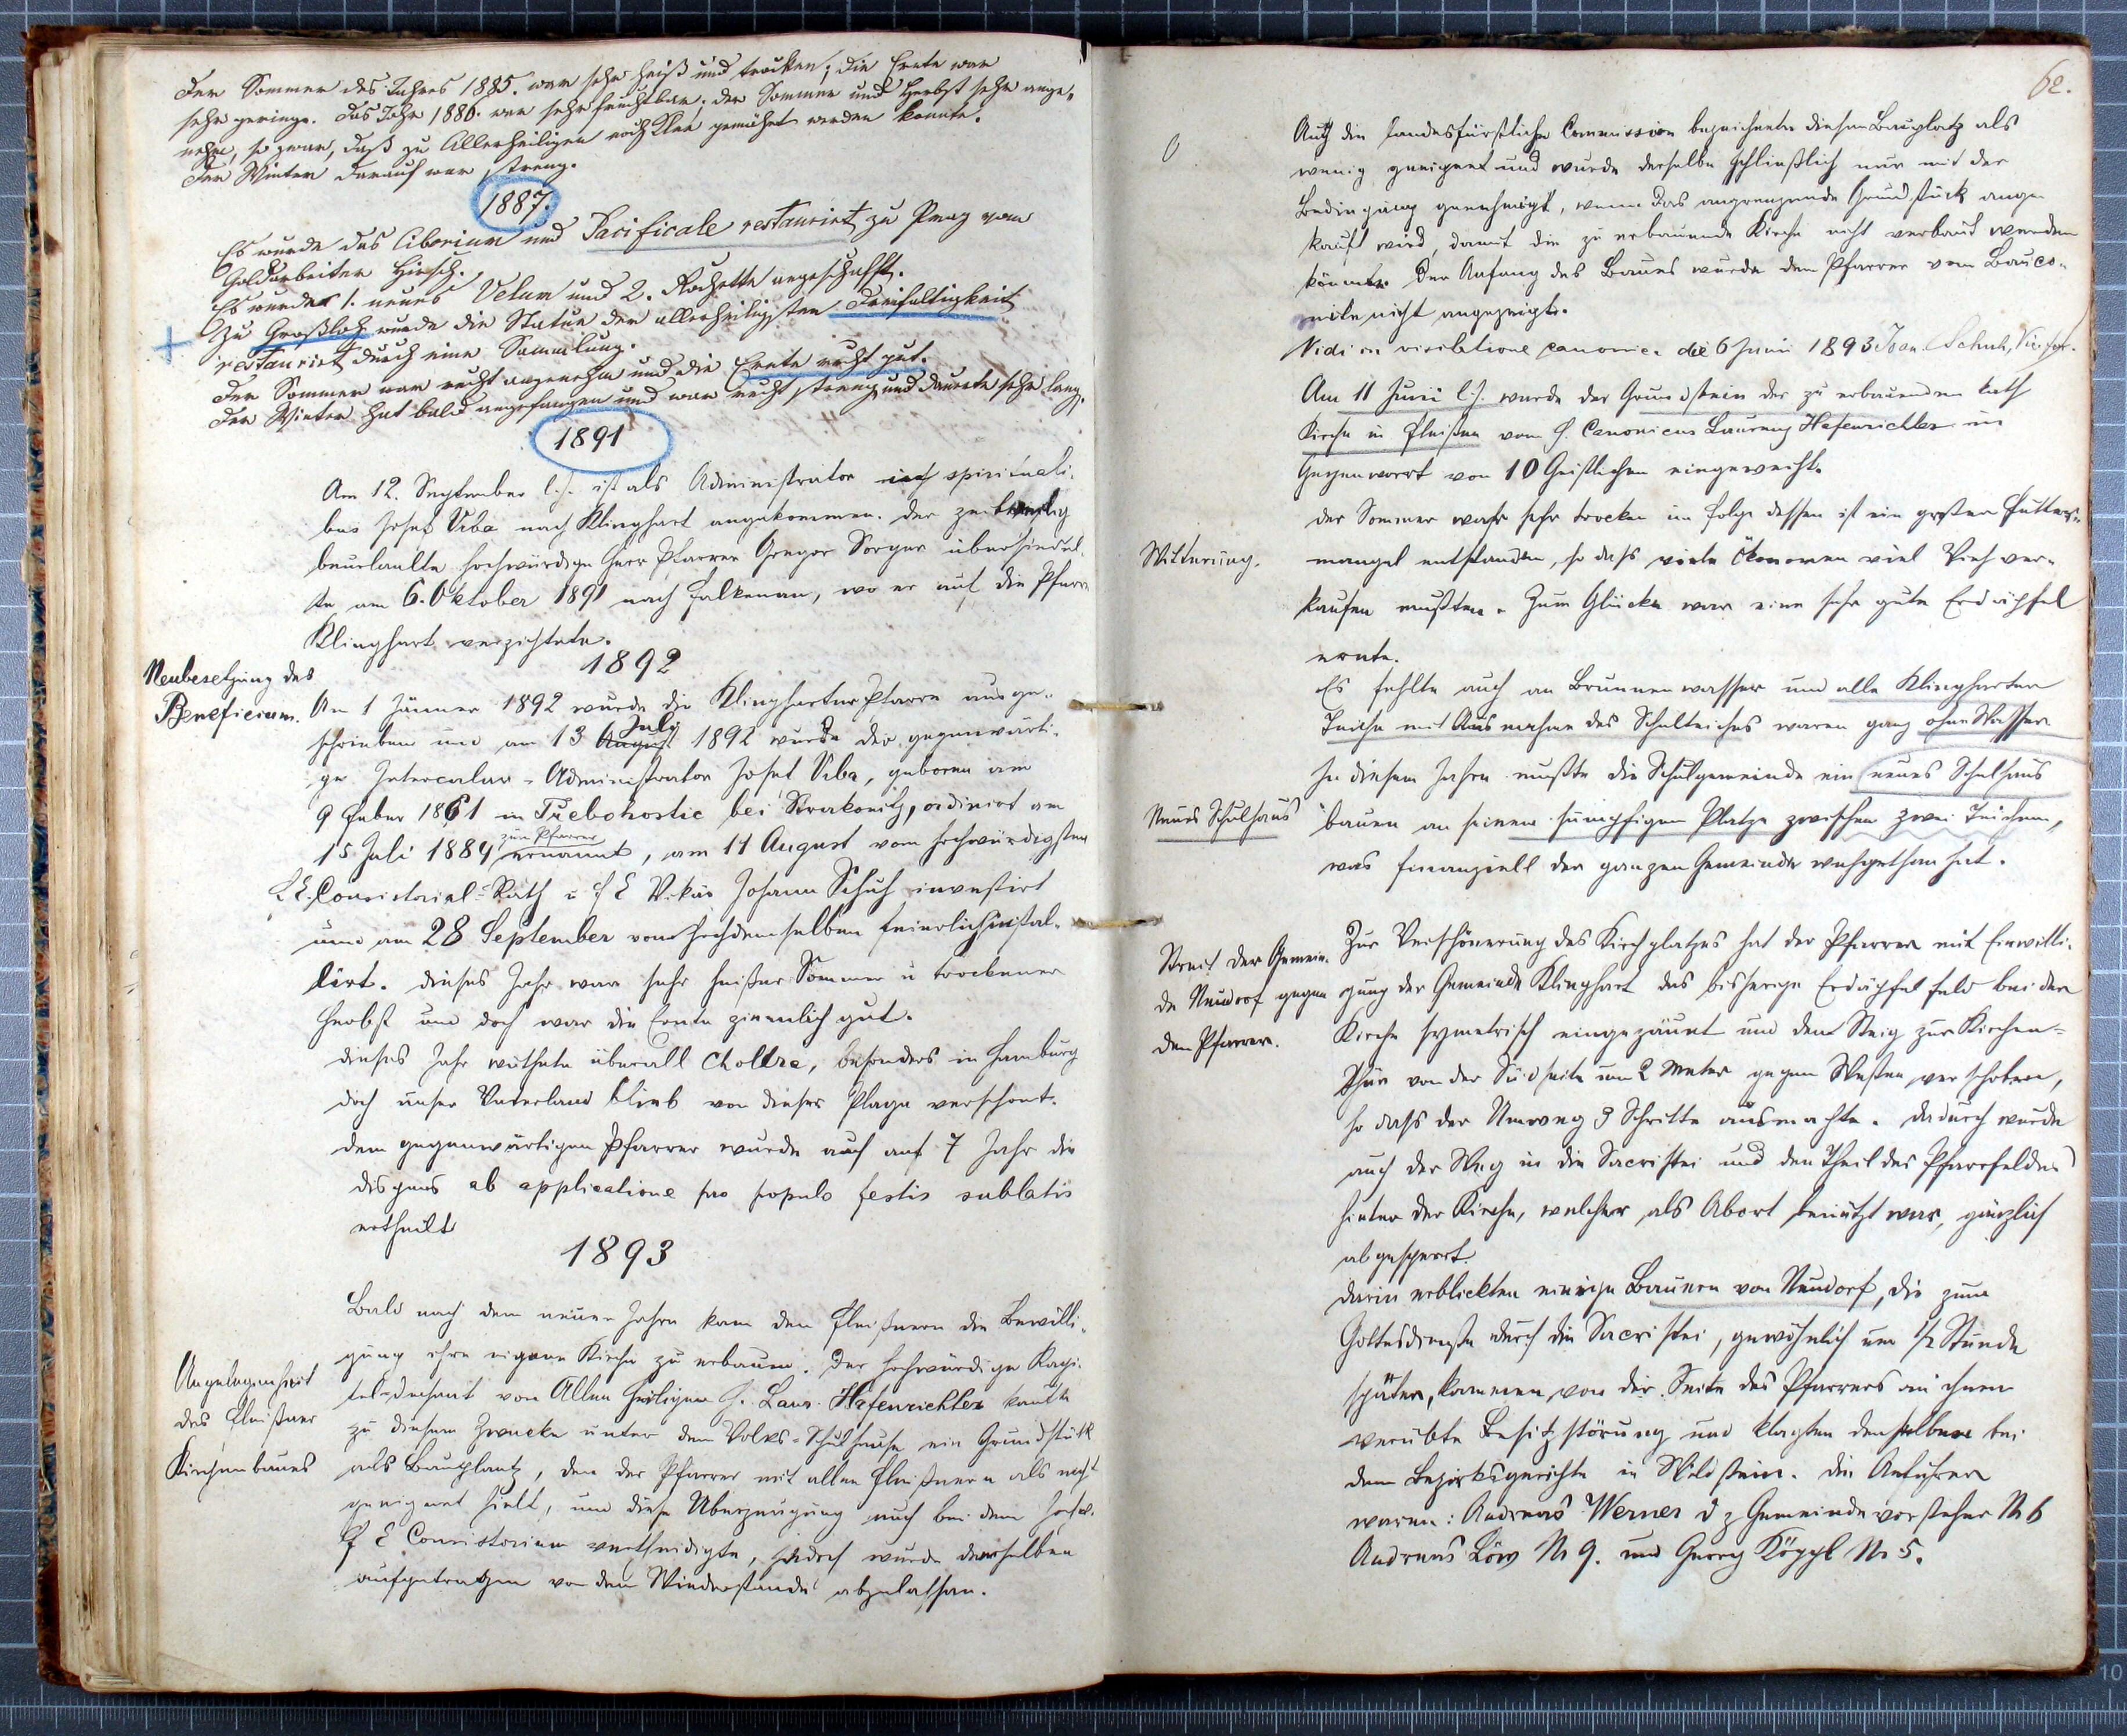 Der Sommer des Jahres 1885. war sehr heiß und trocken; die Ernte war
sehr geringe. Das Jahr 1886. war sehr fruchtbar; der Sommer und Herbst sehr ange-
nehm, so zwar, daß zu Allerheiligen noch Klee gemähet werden konnte.
Der Winter darauf war streng.
1887.
Es wurde das Ciborium und Pacificale restaurirt zu Prag vom
Goldarbeiter Hirsch.
Es wurde 1. neues Velum und 2. Rochette angeschafft.
Zu Großloh wurde die Statue der allerheiligsten Dreifaltigkeit
restaurirt durch eine Sammlung.
Der Sommer war recht angenehm und die Ernte recht gut.
Der Winter hat bald angefangen und war recht streng und dauerte sehr lang.
1891
Am 12. September l. J. ist als Administrator in spirituali-
bus Josef Viba nach Klinghart angekommen. Der zeitweilig
beurlaubte hochwürdige Herr Pfarrer Gregor Sorger übersiedel-
te am 6. Oktober 1891 nach Falkenau, wo er auf die Pfarre
Klinghart verzichtete.
1892
Neubesetzung des
Beneficiums.
Am 1 Jänner 1892 wurde die Klingharter Pfarre ausge-
schrieben und am 13 August July 1892 wurde der gegenwärti-
ge Intercalar-Administrator Josef Viba, geboren am
9 Feber 1861 in Třebohostic bei Strakonitz, ordinirt am
15 Juli 1884 zum Pfarrer ernannt, am 11 August vom hochwürdigsten
f. E. Consistorial-Rath u f E Vikär Johann Schuh investirt
und am 28 September vom hochdemselben feierlich instal-
lirt. Dieses Jahr war sehr heißer Sommer u trockener
Herbst und doch war die Ernte ziemlich gut.
Dieses Jahr wüthete überall Cholera, besonders in Hamburg
doch unser Vaterland blieb von dieser Plage verschont.
Dem gegenwärtigen Pfarrer wurde auch auf 7 Jahr die
dispens ab applicatione pro populo festis sublatis
ertheilt
1893
Angelegenheit
des Fleißner
Kirchenbaues
Bald nach dem neuen Jahre kam den Fleißnern die Bewilli-
gung ihre eigene Kirche zu erbauen. Der hochwürdige Kapi-
tel-dechant von Allen Heiligen H. Laur. Hafenrichter kaufte
zu diesem Zwecke unter dem Volks-Schulhause ein Grundstück
als Bauplatz, den der Pfarrer mit allen Fleißnern als nicht
geeignet hielt, und diese Überzeugung auch bei dem hochw.
f E Consistorium vertheidigte, jedoch wurde demselben
aufgetragen von dem Wiederstande abzulassen.
62.
Auch die landesfürstliche Commission bezeichnete diesen Bauplatz als
wenig geeignet und wurde derselbe schließlich nur mit der
Bedingung genehmigt, wenn das angrenzende Grundstück ange
kauft wird, damit die zu erbauende Kirche nicht verbaut werden
könnte. Der Anfang des Baues wurde dem Pfarrer vom Bauco-
mite nicht angezeigt.
Vidi in visitatione canonica die 6 Juni 1893 Joan. Schuh, Vic. for.
Am 11 Juni l. J. wurde der Grundstein der zu erbauenden kath
Kirche in Fleißen vom H. Canonicus Laurenz Hafenrichter in
Gegenwart von 10 Geistlichen eingeweiht.
Witterung.
Der Sommer war sehr trocken in folge dessen ist ein großer Futter-
mangel entstanden, so dass viele Ökonomen viel Vieh ver-
kaufen mußten. Zum Glücke war eine sehr gute Erdäpfel
ernte.
Es fehlte auch an Brunnenwasser und alle Klingharter
Teiche mit Ausnahme des Schulteiches waren ganz ohne Wasser
Neues Schulhaus
In diesem Jahre mußte die Schulgemeinde ein neues Schulhaus
bauen an seinem sumpfigen Platze zwischen zwei Teichen,
was finanziell der ganzen Gemeinde wehgethan hat.
Streit der Gemein-
de Neudorf gegen
den Pfarrer.
Zur Verschönerung des Kirchplatzes hat der Pfarrer mit Einwilli-
gung der Gemeinde Klinghart das bisherige Erdäpfelfeld bei der
Kirche symetrisch eingezäunt und den Steig zur Kirchen-
thür von der Südseite um 2 Meter gegen Westen verschoben,
so dass der Umweg 3 Schritte ausmachte. Dadurch wurde
auch der Weg in die Sacristei und den Theil des Pfarrfeldes
hinter der Kirche, welcher als Abort benützt war, gänzlich
abgesperrt.
Darin erblickten einige Bauern von Neudorf, die zum
Gottesdienste durch die Sacristei, gewöhnlich um ½ Stunde
später, kommen von der Seite des Pfarrers an ihnen
verübte Besitzstörung und klagten denselben bei
dem Bezirksgerichte in Wildstein. Die Anführer
waren: Andreas Werner d z Gemeindevorsteher N 6
Andreas Löw N 9. und Georg Köppl N 5.